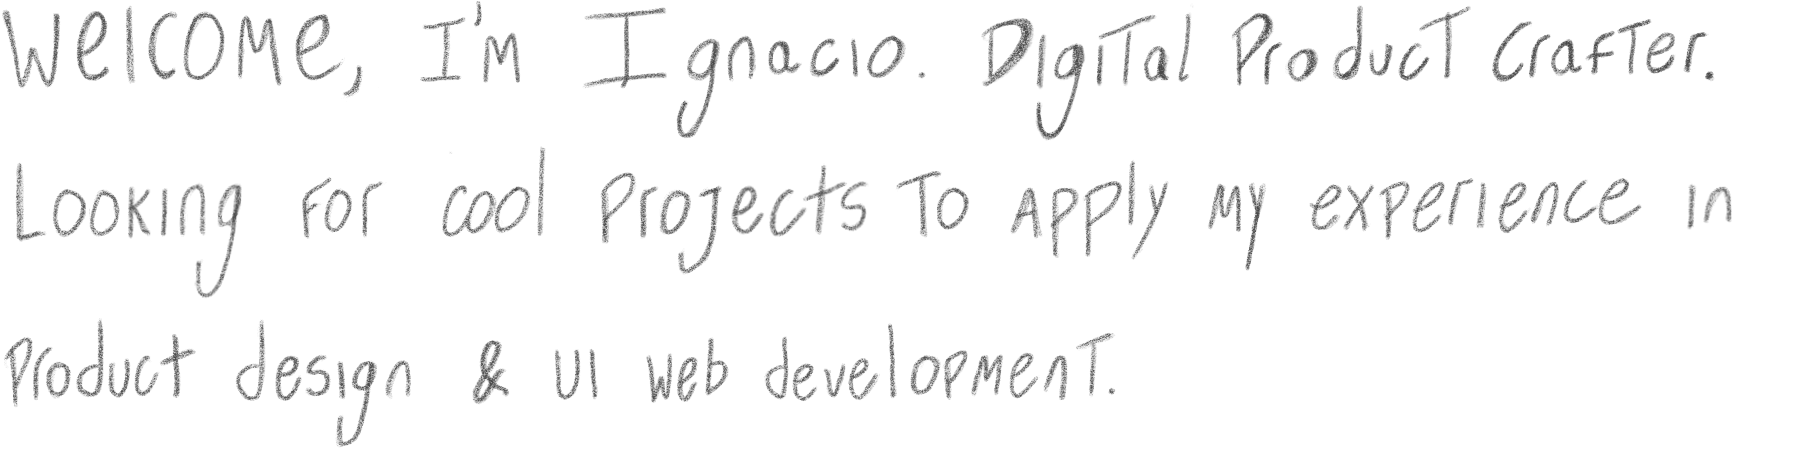 Welcome, I'm Ignacio. Digital Product Crafter.
Looking for cool projects to apply my experience in
product design & UI web development.